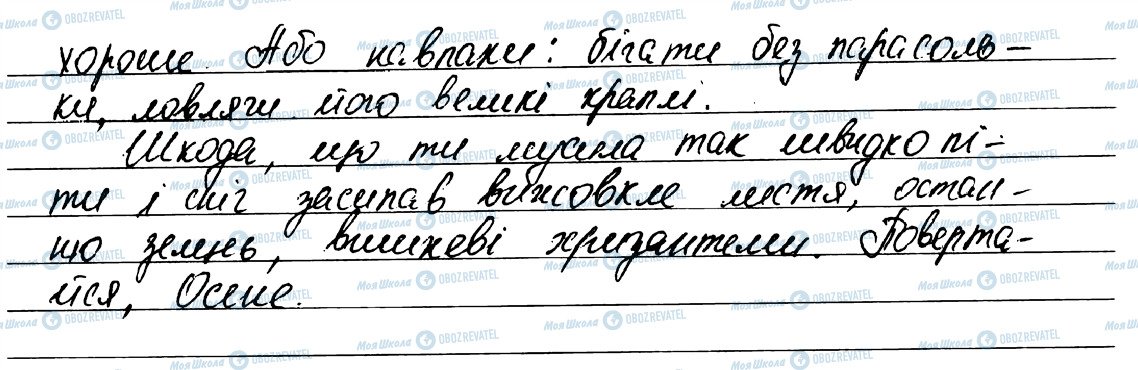 хороше. Або навпаки: бігати без парасоль-
ки, ловлячи його великі краплі.
Шкода, що ти мусила так швидко пі-
ти і сніг засипав вижовкле листя, остан-
ню зелень, вишневі хризантеми. Поверта-
йся, Осене.